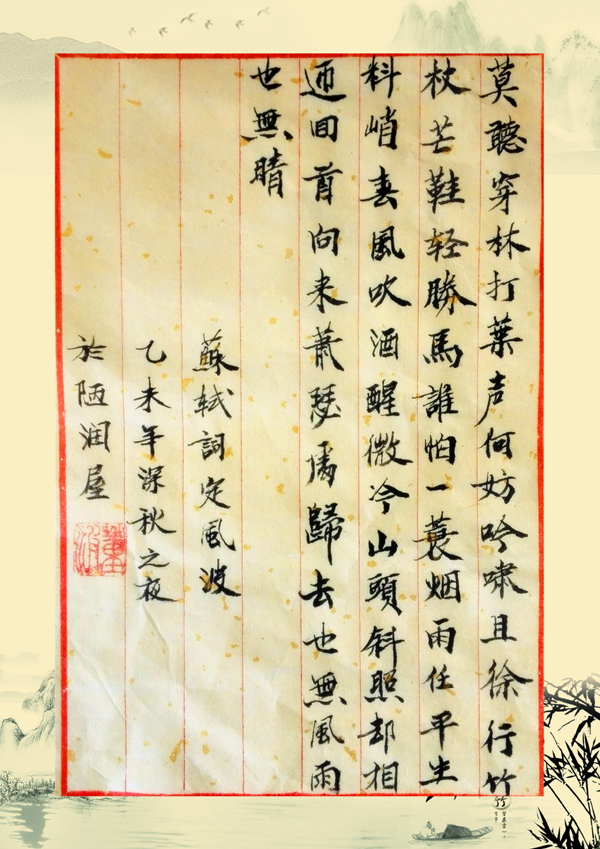 莫聽穿林打葉声何妨吟嘯且徐行竹
杖芒鞋轻勝馬誰怕一蓑烟雨任平生
料峭春風吹酒醒微冷山頭斜照却相
迎回首向来萧瑟處歸去也無風雨
也無晴
蘇軾詞定風波
乙未年深秋之夜
於陋润屋